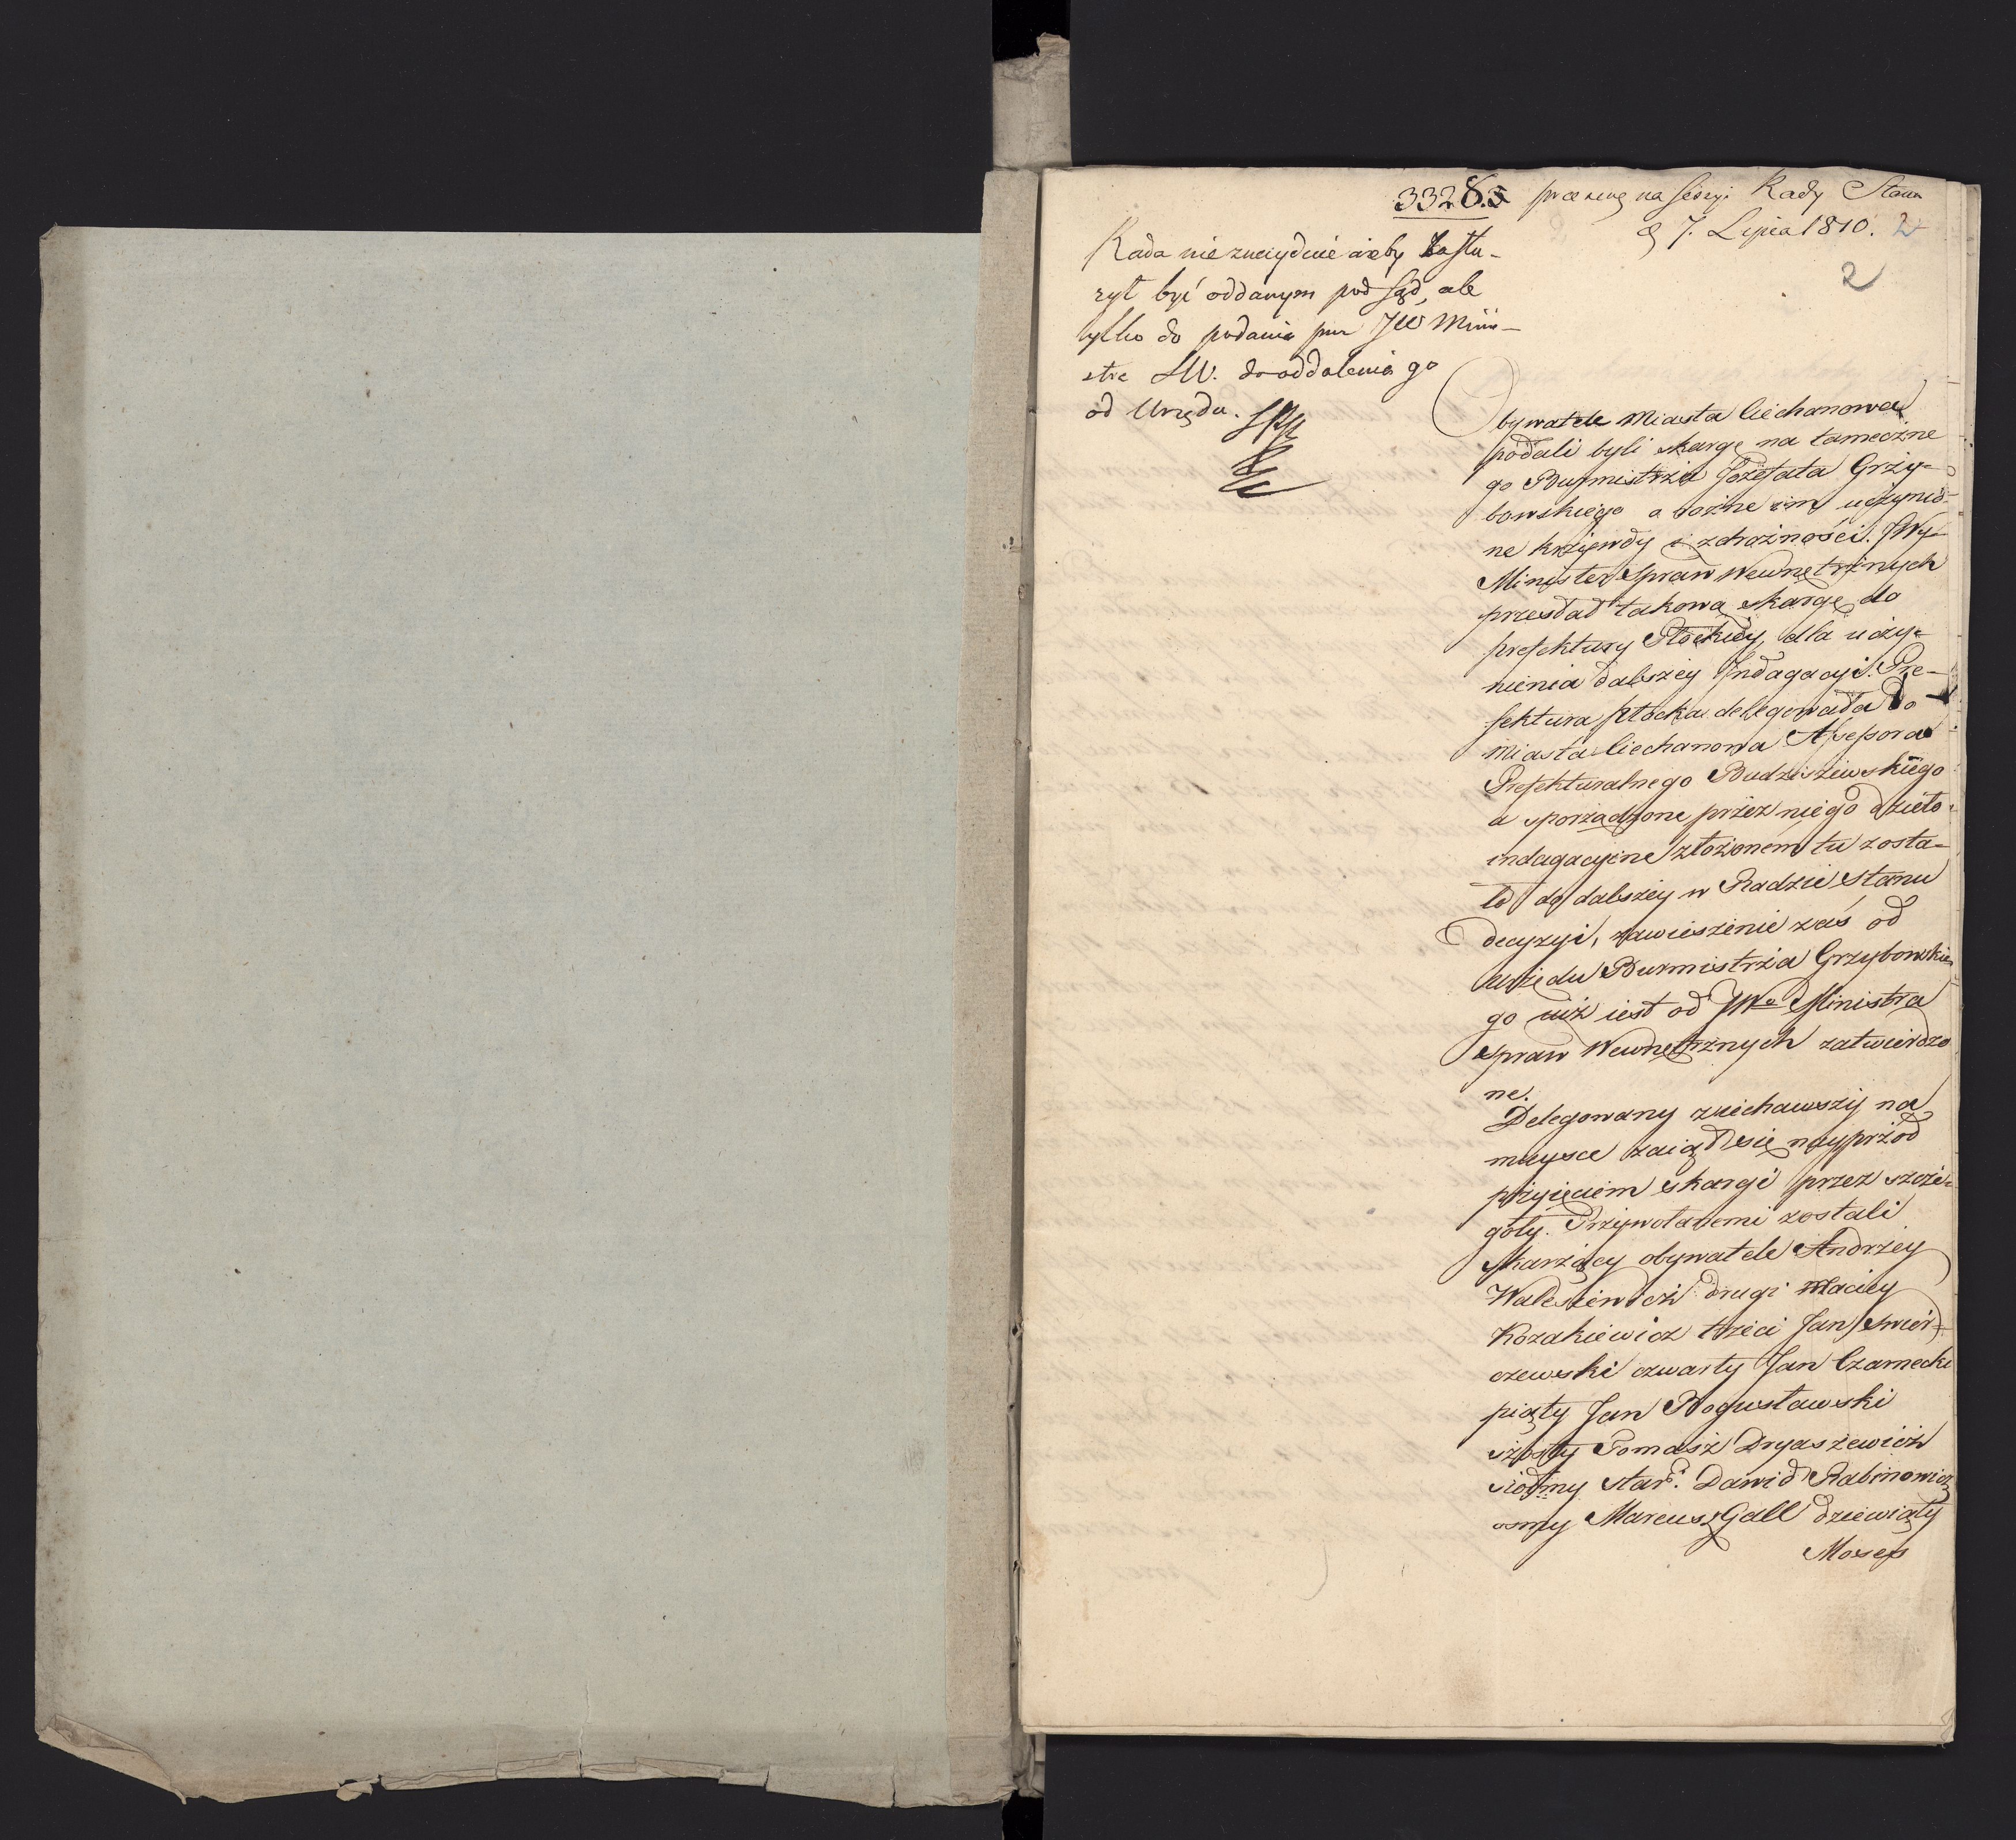 3328.5 na sessyi Rady Stanu
d 7. Lipca 1810. 2
2
Rada nie znayduie ażeby zasłu-
żył być oddanym pod sąd, ale
tylko do podania przez JW Mini-
stra SW. do oddalenia go
od Urzędu.
Obywatele Miasta Ciechanowa
podali byli skargę na tameczne
go Burmistrza Jozefata Grzy=
bowskiego o rożne im uczynio-
ne krzywdy i zdrożności. JWy
Minister Spraw Wewnętrznych
przesłał takową skargę do
prefektury Płockiey, dla uczy=
nienia dalszey Indagacyi. Pre-
fektura Płocka delegowała do
miasta Ciechanowa Assessora
Prefekturalnego Budziszewskiego
a sporządzone przez niego dzieło
indagacyine złożonem tu zosta=
ło do dalszey w Radzie Stanu
decyzyi, zawieszenie zaś od
urzędu Burmistrza Grzybowskie
go iuż iest od JWo Ministra
Spraw Wewnętrznych zatwierdzo
ne.
Delegowany ziechawszy na
mieysce zaiął się nayprzod
przyięciem skargi przez szcze=
goły. Przywołanemi zostali
skarzący obywatele Andrzey
Waleszewicz drugi Maciey
Kozakiewicz trzeci Jan Swier=
czewski czwarty Jan Czarnecki
piąty Jan Bogusławski
szosty Tomasz Dryaszewicz
siodmy Star. Dawid Rabinowicz
osmy Mareusz Gall dziewiąty
Moses